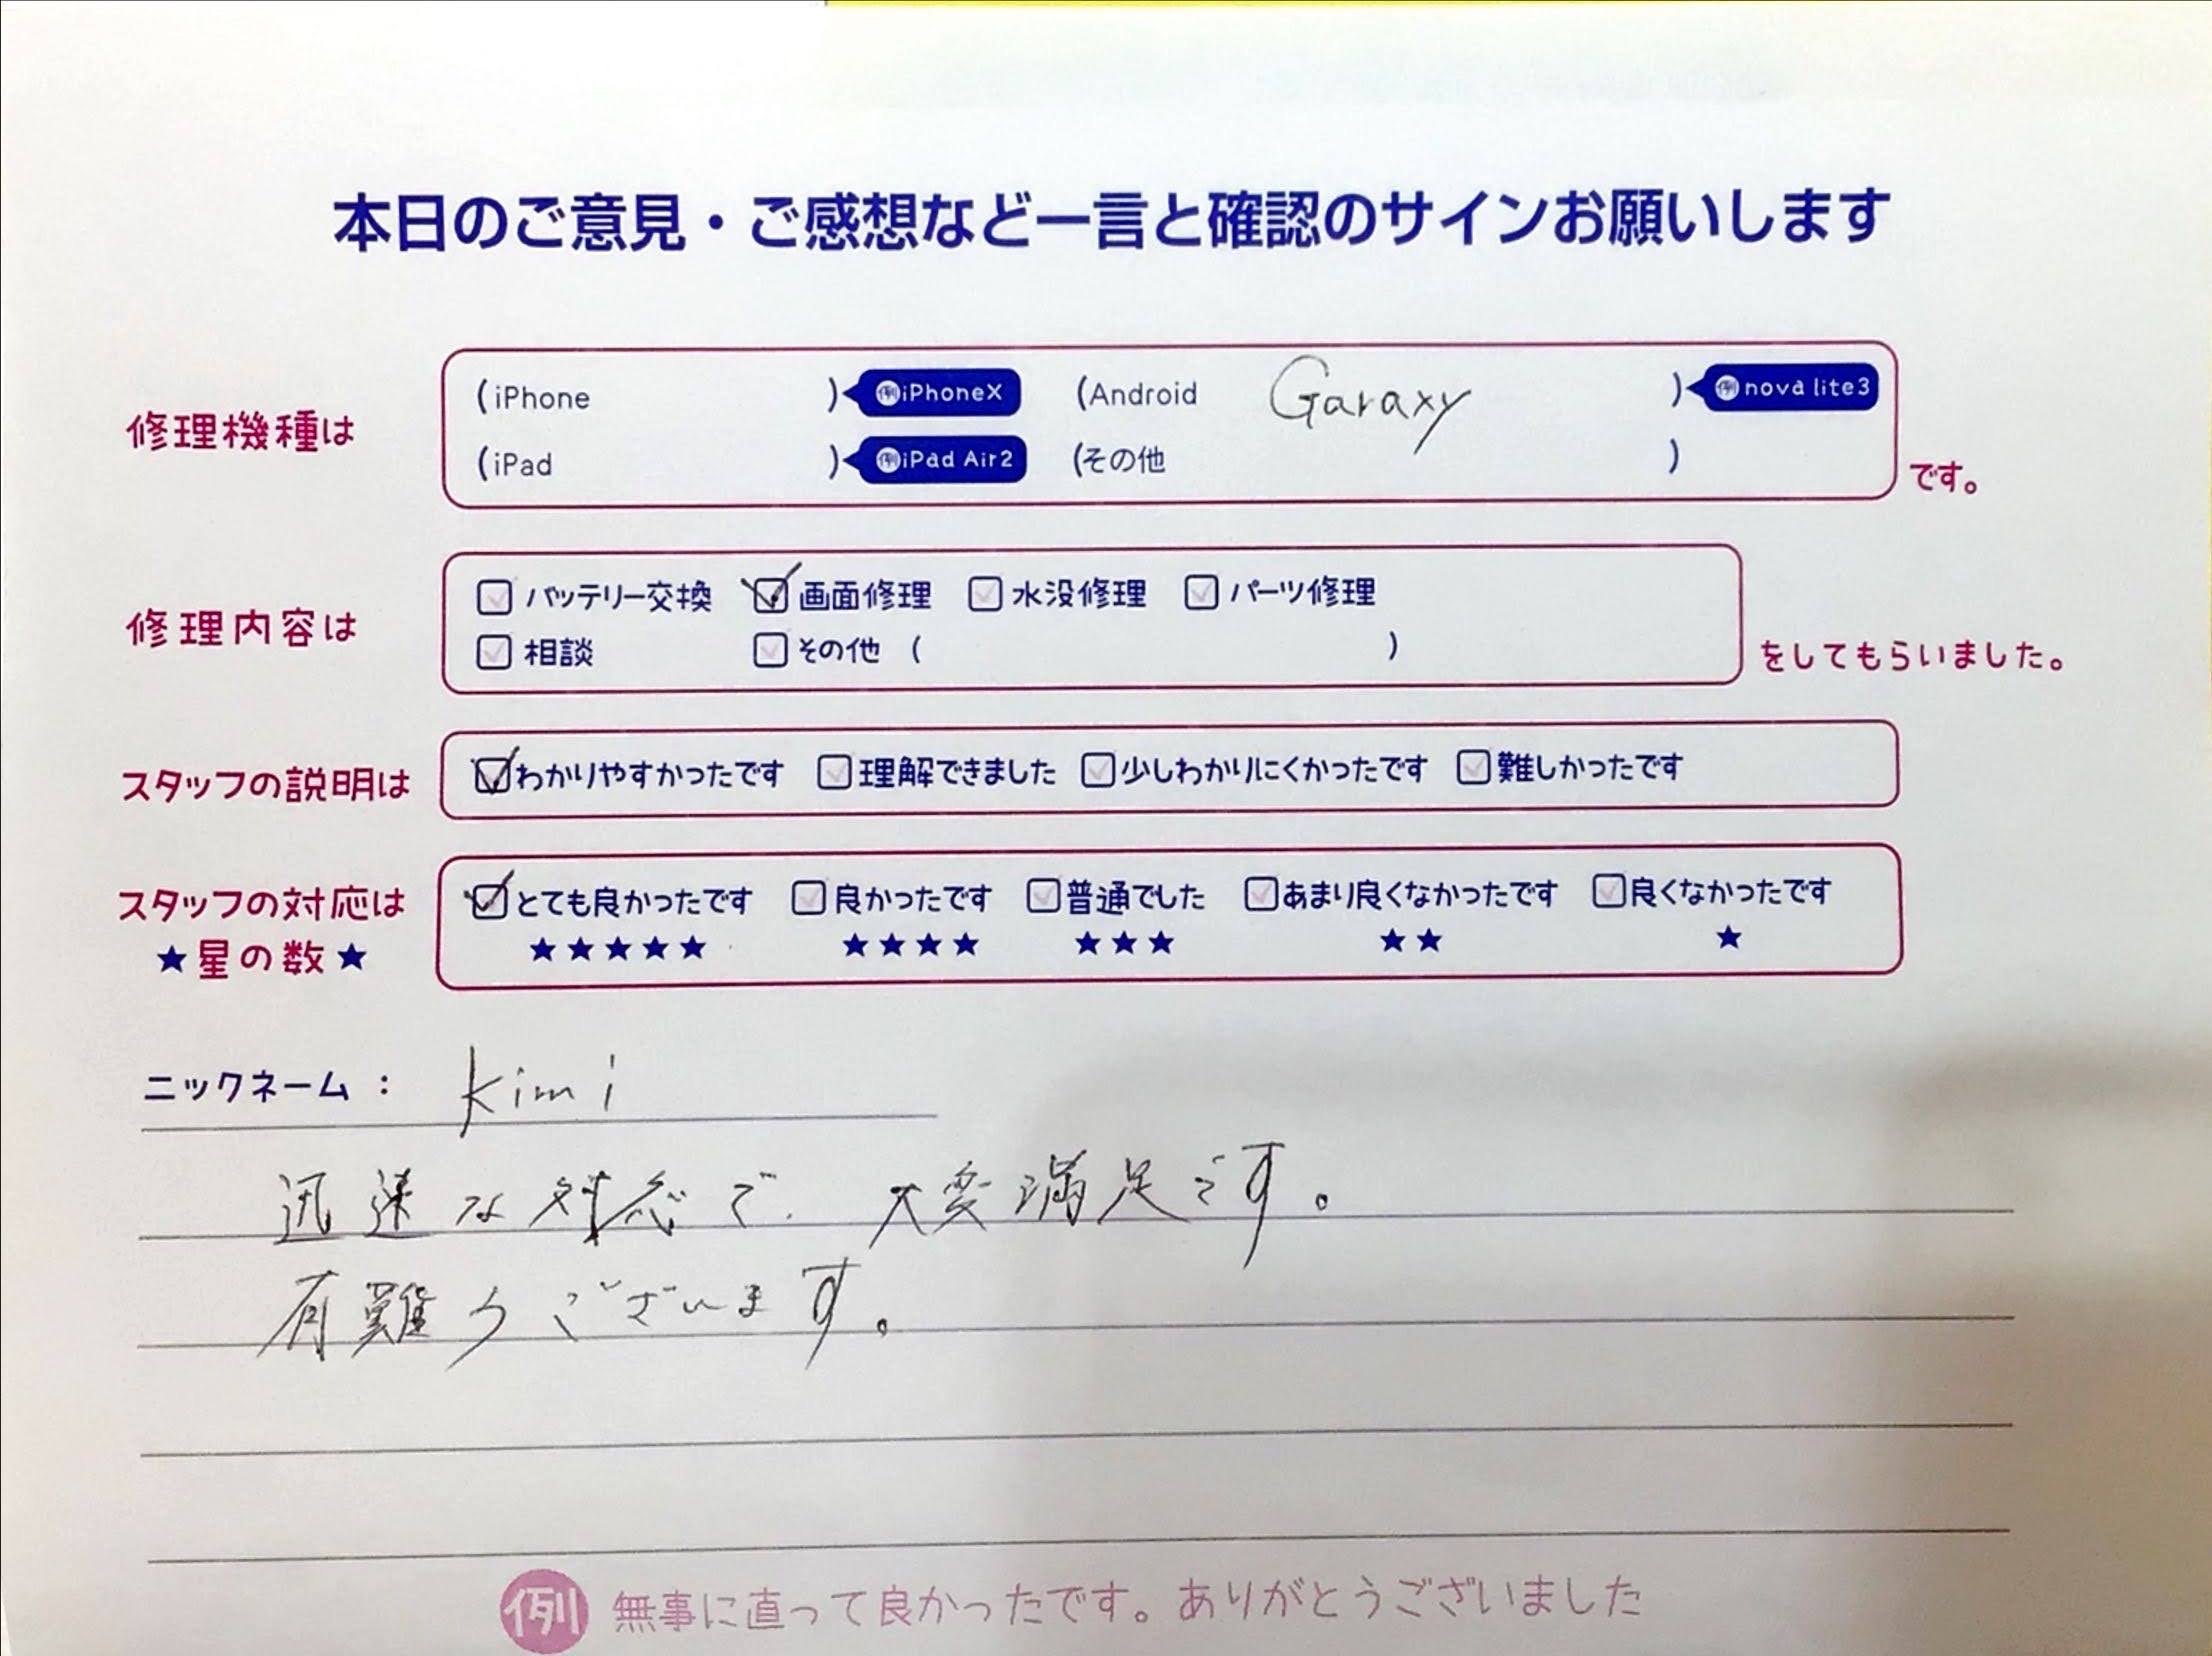 本日のご意見・ご感想など一言と確認のサインお願いします
修理機種は (iPhone ) 例iPhoneX (Android Garaxy ) 例nova lite3
(iPad ) 例iPad Air2 (その他 ) です。
修理内容は バッテリー交換 画面修理 水没修理 パーツ修理
相談 その他 ( ) をしてもらいました。
スタッフの説明は わかりやすかったです 理解できました 少しわかりにくかったです 難しかったです
スタッフの対応は とても良かったです 良かったです 普通でした あまり良くなかったです 良くなかったです
★星の数★ ★★★★★ ★★★★ ★★★ ★★ ★
ニックネーム： kimi
迅速な対応で、大変満足です。
有難うございます。
例 無事に直って良かったです。ありがとうございました